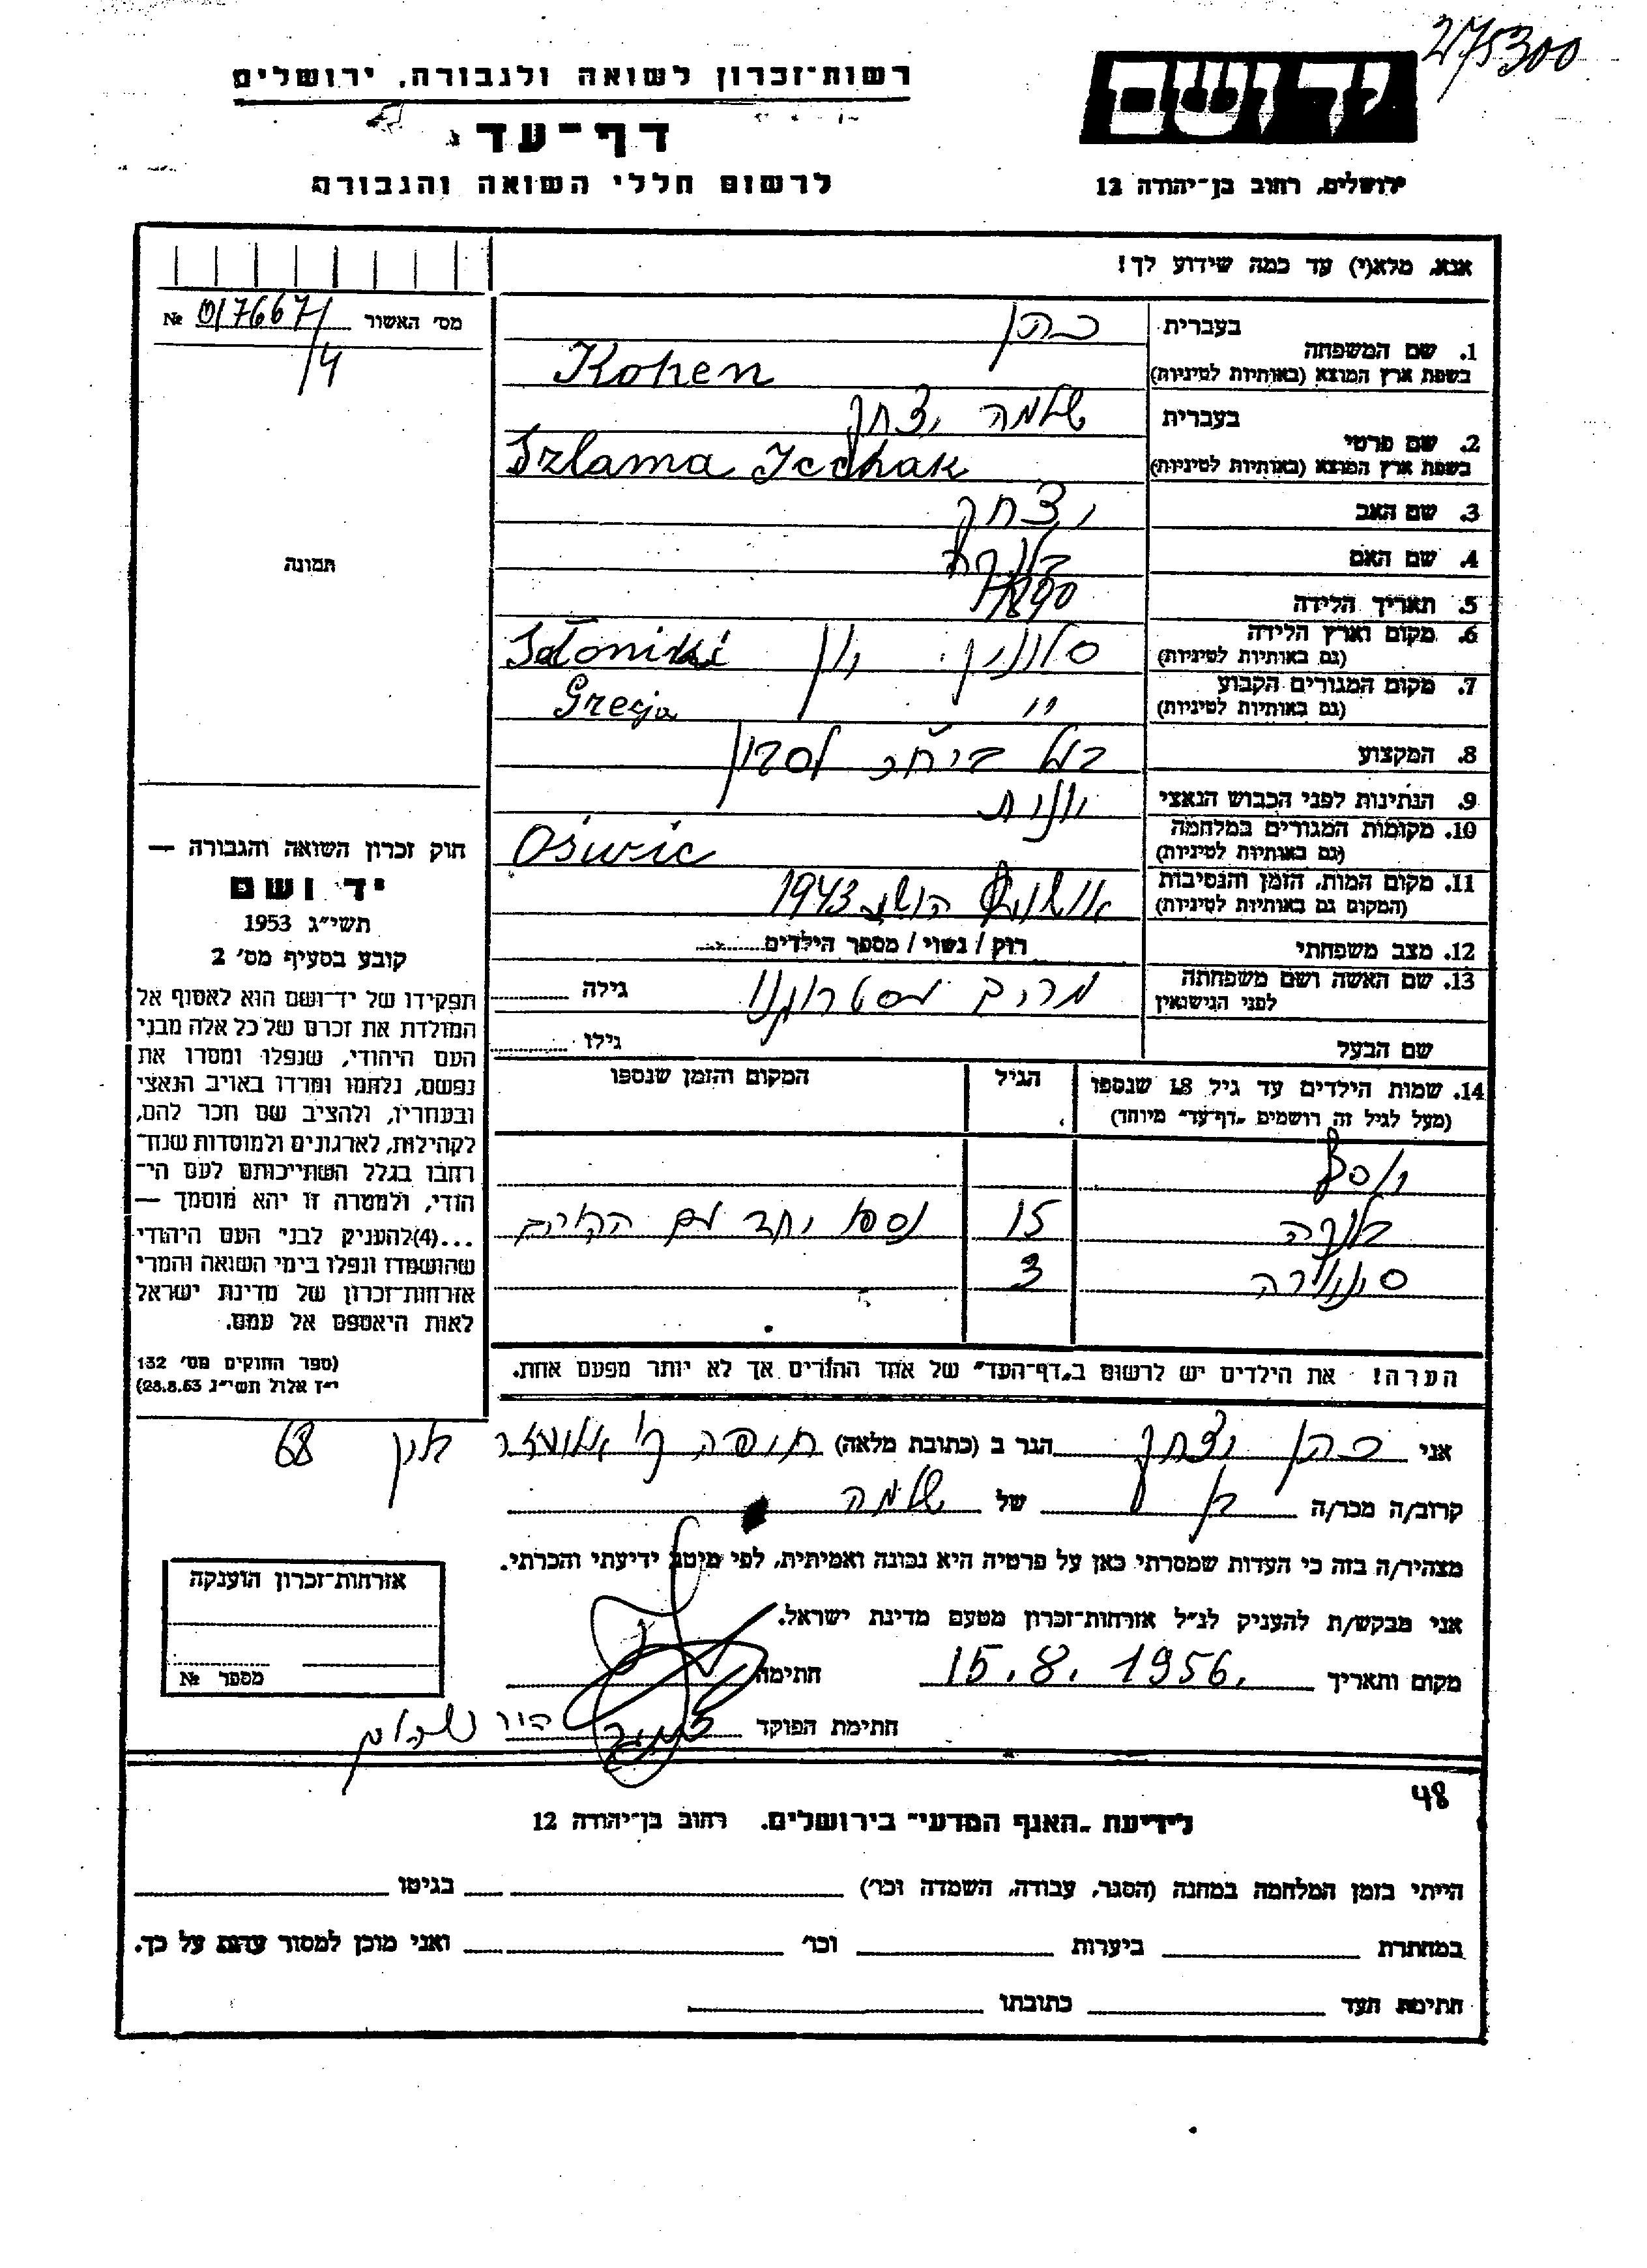 275300
רשות־זכרון לשואה ולגבורה, ירושלים
יד ושם
דף־עד
לרשום חללי השואה והגבורה
ירושלים, רחוב בן־יהודה 12
אנא, מלא(י) עד כמה שידוע לך!
מס׳ האשור 017667/ №
4
1. שם המשפחה
בעברית כהן
בשפת ארץ המוצא (באותיות לטיניות) Kohen
2. שם פרטי
בעברית שלמה יצחק
בשפת ארץ המוצא (באותיות לטיניות) Szlama Icchak
3. שם האב יצחק
4. שם האם
5. תאריך הלידה 1890
6. מקום וארץ הלידה סלוניקי יון Saloniki
(גם באותיות לטיניות)
7. מקום המגורים הקבוע " Grecja
(גם באותיות לטיניות)
8. המקצוע בעל ביח״ר לסבון
9. הנתינות לפני הכבוש הנאצי יונית
10. מקומות המגורים במלחמה Oświc
(גם באותיות לטיניות)
11. מקום המות, הזמן והנסיבות אושויץ 1943
(המקום גם באותיות לטיניות)
12. מצב משפחתי רוק / נשוי / מספר הילדים
13. שם האשה ושם משפחתה מרים גילה
לפני הנישואין
שם הבעל גילו
14. שמות הילדים עד גיל 18 שנספו הגיל המקום והזמן שנספו
(מעל לגיל זה רושמים „דף־עד״ מיוחד)
יוסף
15 נספו יחד עם ההורים
3
הערה! את הילדים יש לרשום ב„דף־העד״ של אחד ההורים אך לא יותר מפעם אחת.
תמונה
חוק זכרון השואה והגבורה —
יד ושם
תשי״ג 1953
קובע בסעיף מס׳ 2
תפקידו של יד־ושם הוא לאסוף אל
המולדת את זכרם של כל אלה מבני
העם היהודי, שנפלו ומסרו את
נפשם, נלחמו ומרדו באויב הנאצי
ובעוזריו, ולהציב שם וזכר להם,
לקהילות, לארגונים ולמוסדות שנח־
רבו בגלל השתייכותם לעם הי־
הודי, ולמטרה זו יהא מוסמך —
...(4) להעניק לבני העם היהודי
שהושמדו ונפלו בימי השואה והמרי
אזרחות־זכרון של מדינת ישראל
לאות היאספם אל עמם.
(ספר החוקים מס׳ 132
י״ז אלול תשי״ג 28.8.53)
אני כהן יצחק הגר ב (כתובת מלאה) חיפה ק׳ אליעזר 68
קרוב/ה מכר/ה בן של שלמה
מצהיר/ה בזה כי העדות שמסרתי כאן על פרטיה היא נכונה ואמיתית, לפי מיטב ידיעתי והכרתי.
אני מבקש/ת להעניק לנ״ל אזרחות־זכרון מטעם מדינת ישראל.
מקום ותאריך 15.8.1956. חתימה
חתימת הפוקד
אזרחות־זכרון הוענקה
מספר №
48
לידיעת „האגף המדעי״ בירושלים. רחוב בן־יהודה 12
הייתי בזמן המלחמה במחנה (הסגר, עבודה, השמדה וכר׳) בגיטו
במחתרת ביערות וכר׳ ואני מוכן למסור עדות על כך.
חתימת העד כתובתו